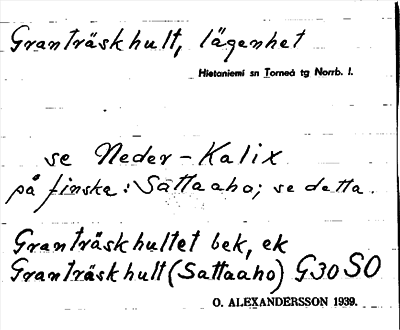 Granträskhult, lägenhet
Hietaniemi sn Torneå tg Norrb. l.
se Neder-Kalix
på finska: Sattaaho; se detta.
Granträskhultet bek, ek
Granträskhult (Sattaaho) G30 SO
O. ALEXANDERSSON 1939.